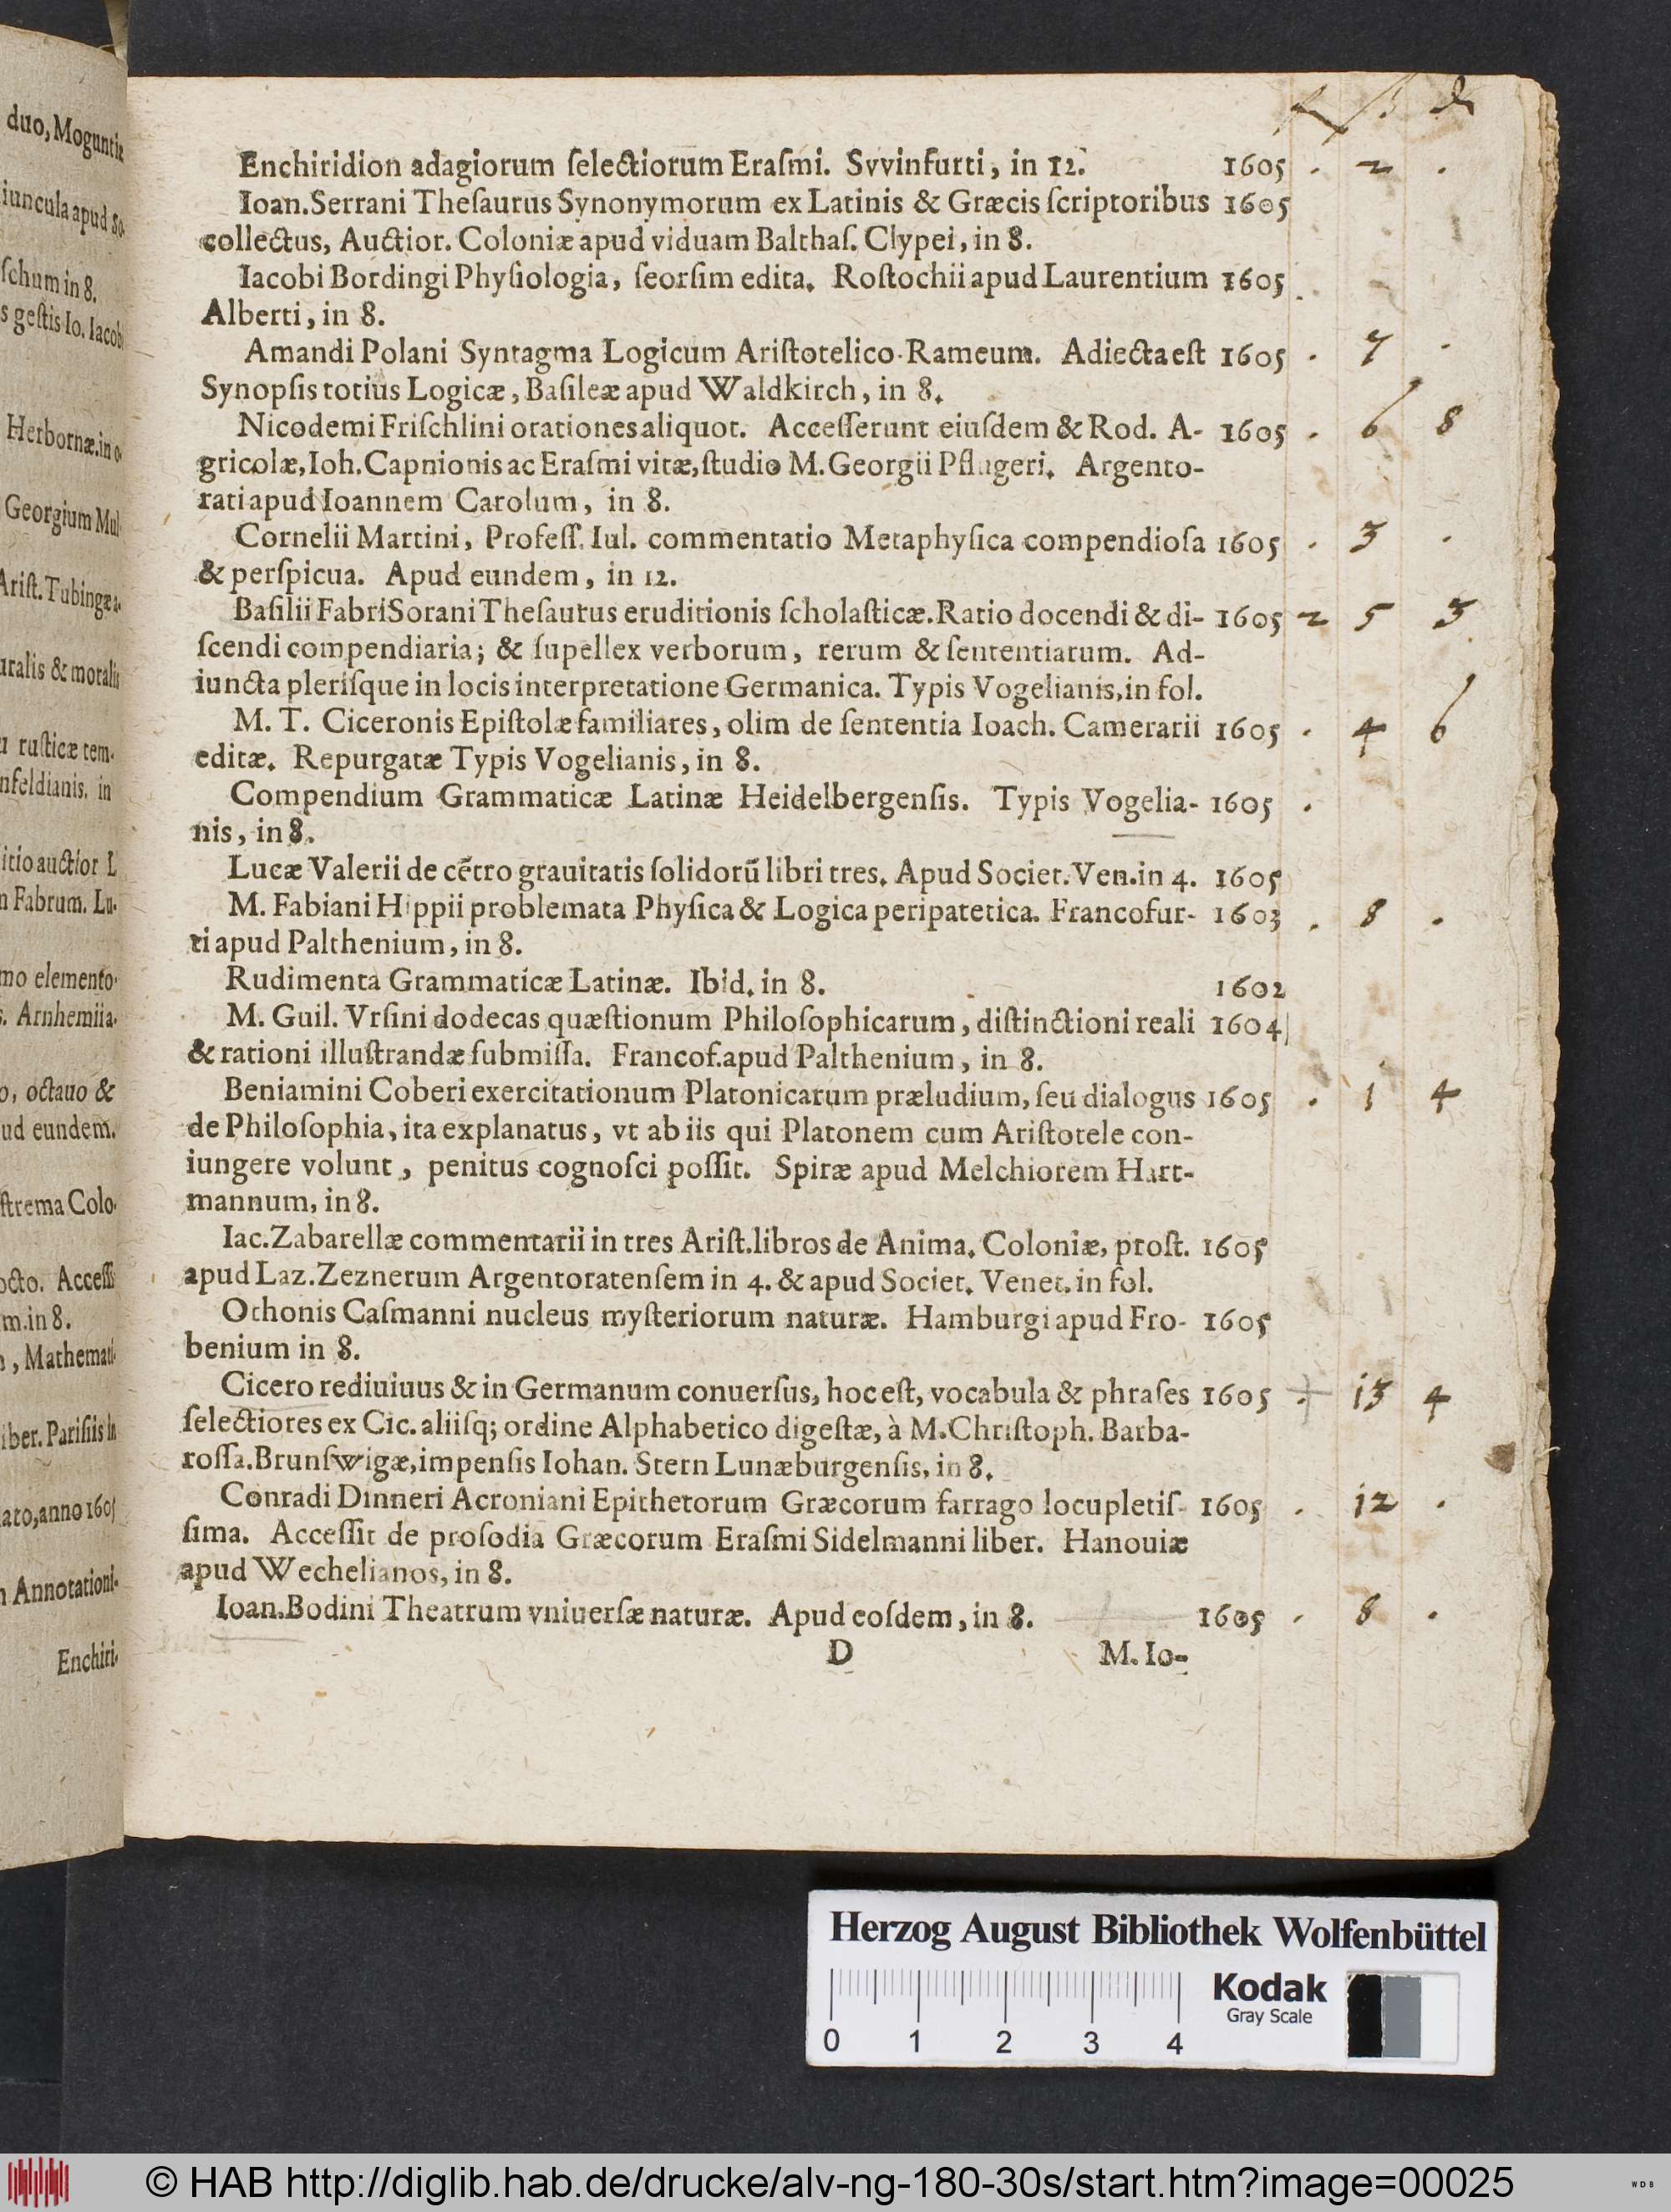 duo, Moguntiæ
iuncula apud So-
ſchum in 8.
s geſtis Io. Iacob
Herbornæ. in o-
Georgium Mul-
Ariſt. Tubingæ a-
uralis & moralis
u ruſticæ tem-
nfeldianis. in
itio auctior L
n Fabrum. Lu-
mo elemento-
s. Arnhemii a-
o, octauo &
ud eundem.
ſtrema Colo-
octo. Acceſſi
m. in 8.
, Mathemati-
iber. Pariſiis in
ato, anno 1605
n Annotationi-
Enchiri-
Enchiridion adagiorum ſelectiorum Eraſmi. Svvinfurti, in 12. 1605 . 2 .
Ioan. Serrani Theſaurus Synonymorum ex Latinis & Græcis ſcriptoribus 1605
collectus, Auctior. Coloniæ apud viduam Balthaſ. Clypei, in 8.
Iacobi Bordingi Phyſiologia, ſeorſim edita. Roſtochii apud Laurentium 1605
Alberti, in 8.
Amandi Polani Syntagma Logicum Ariſtotelico-Rameum. Adiecta eſt 1605 . 7 .
Synopſis totius Logicæ, Baſileæ apud Waldkirch, in 8.
Nicodemi Friſchlini orationes aliquot. Acceſſerunt eiuſdem & Rod. A- 1605 . 6 8
gricolæ, Ioh. Capnionis ac Eraſmi vitæ, ſtudio M. Georgii Pflugeri. Argento-
rati apud Ioannem Carolum, in 8.
Cornelii Martini, Profeſſ. Iul. commentatio Metaphyſica compendioſa 1605 . 3 .
& perſpicua. Apud eundem, in 12.
Baſilii Fabri Sorani Theſaurus eruditionis ſcholaſticæ. Ratio docendi & di- 1605 2 5 3
ſcendi compendiaria; & ſupellex verborum, rerum & ſententiarum. Ad-
iuncta pleriſque in locis interpretatione Germanica. Typis Vogelianis, in fol.
M. T. Ciceronis Epiſtolæ familiares, olim de ſententia Ioach. Camerarii 1605 . 4 6
editæ. Repurgatæ Typis Vogelianis, in 8.
Compendium Grammaticæ Latinæ Heidelbergenſis. Typis Vogelia- 1605 .
nis, in 8.
Lucæ Valerii de cẽtro grauitatis ſolidorũ libri tres. Apud Societ. Ven. in 4. 1605
M. Fabiani Hippii problemata Phyſica & Logica peripatetica. Francofur- 1603 . 8 .
ti apud Palthenium, in 8.
Rudimenta Grammaticæ Latinæ. Ibid. in 8. 1602
M. Guil. Vrſini dodecas quæſtionum Philoſophicarum, diſtinctioni reali 1604
& rationi illuſtrandæ ſubmiſſa. Francof. apud Palthenium, in 8.
Beniamini Coberi exercitationum Platonicarum præludium, ſeu dialogus 1605 . 1 4
de Philoſophia, ita explanatus, vt ab iis qui Platonem cum Ariſtotele con-
iungere volunt, penitus cognoſci poſſit. Spiræ apud Melchiorem Hart-
mannum, in 8.
Iac. Zabarellæ commentarii in tres Ariſt. libros de Anima. Coloniæ, proſt. 1605
apud Laz. Zeznerum Argentoratenſem in 4. & apud Societ. Venet. in fol.
Othonis Caſmanni nucleus myſteriorum naturæ. Hamburgi apud Fro- 1605
benium in 8.
Cicero rediuiuus & in Germanum conuerſus, hoc eſt, vocabula & phraſes 1605 + 13 4
ſelectiores ex Cic. aliiſq; ordine Alphabetico digeſtæ, à M. Chriſtoph. Barba-
roſſa. Brunſwigæ, impenſis Iohan. Stern Lunæburgenſis, in 8.
Conradi Dinneri Acroniani Epithetorum Græcorum farrago locupletiſ- 1605 . 12 .
ſima. Acceſſit de proſodia Græcorum Eraſmi Sidelmanni liber. Hanouiæ
apud Wechelianos, in 8.
Ioan. Bodini Theatrum vniuerſæ naturæ. Apud eoſdem, in 8. 1605 . 8 .
D M. Io-
Herzog August Bibliothek Wolfenbüttel
Kodak
Gray Scale
0 1 2 3 4
© HAB http://diglib.hab.de/drucke/alv-ng-180-30s/start.htm?image=00025
WDB